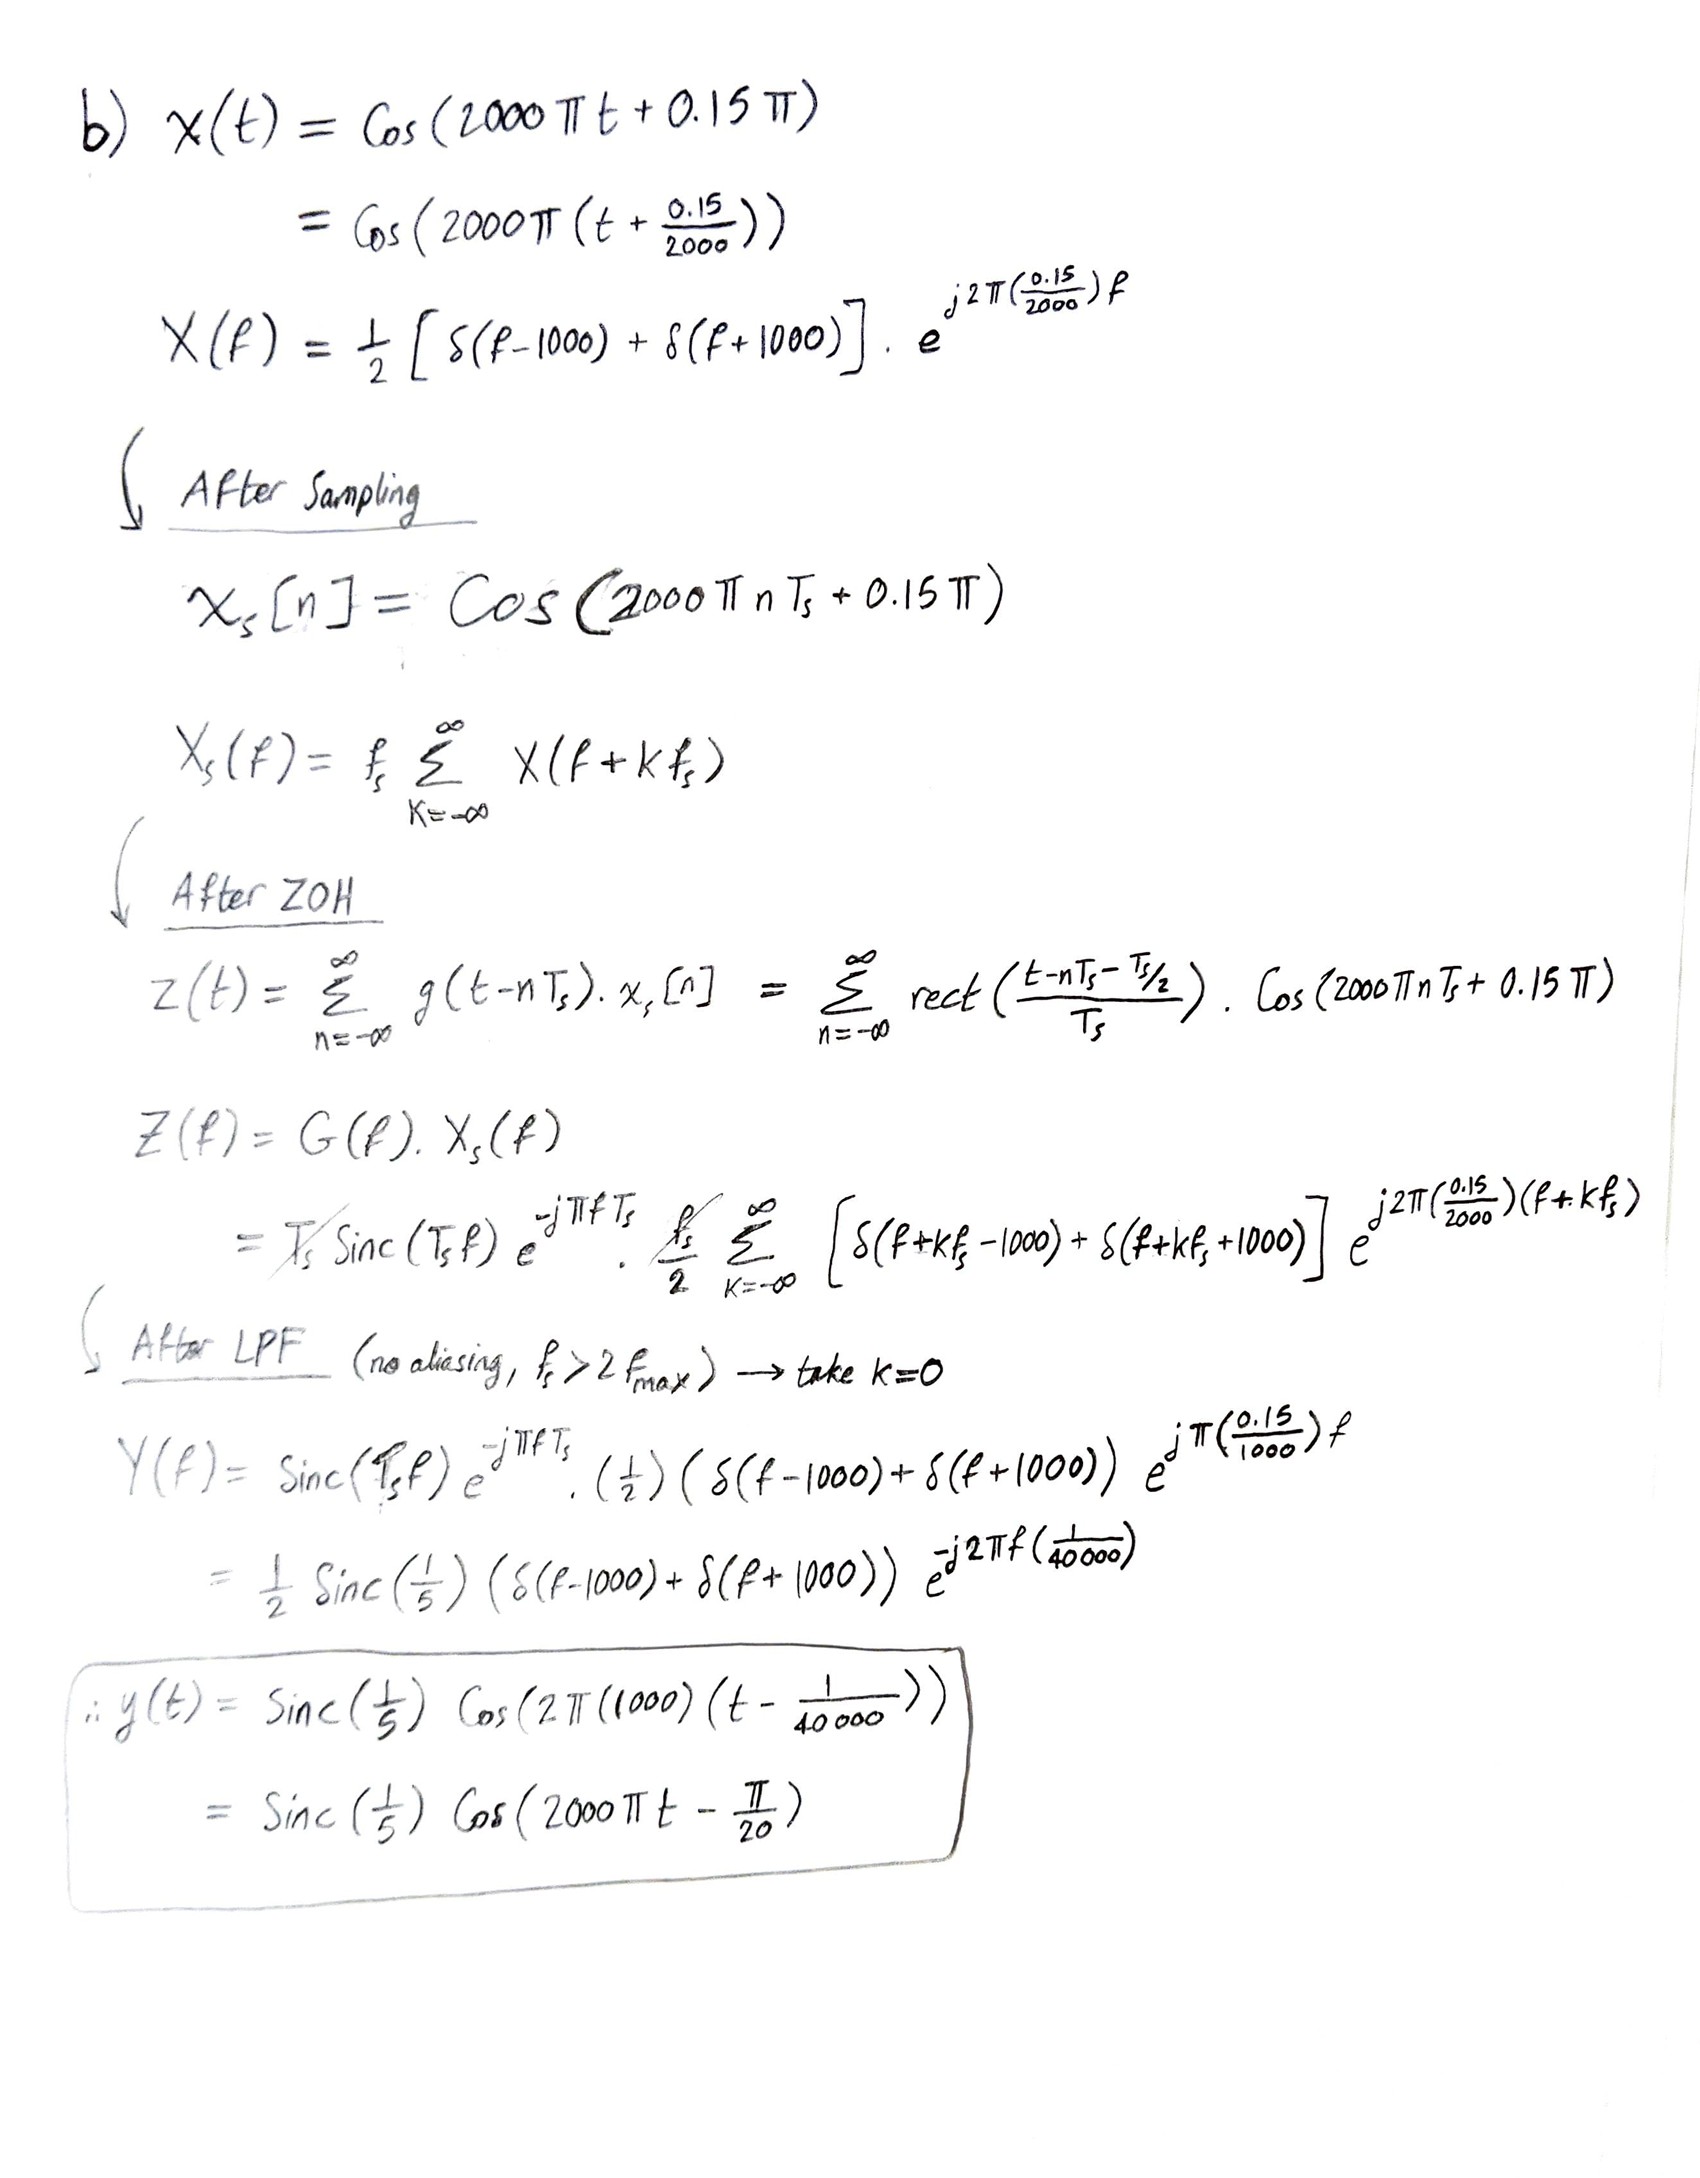 b) x(t) = Cos(2000πt + 0.15π)
= Cos(2000π(t + 0.15/2000))
X(f) = 1/2 [δ(f-1000) + δ(f+1000)] . e^{j2π(0.15/2000)f}
After Sampling
x_s[n] = Cos(2000πnT_s + 0.15π)
X_s(f) = f_s Σ_{k=-∞}^{∞} X(f+kf_s)
After ZOH
z(t) = Σ_{n=-∞}^{∞} g(t-nT_s). x_s[n] = Σ_{n=-∞}^{∞} rect((t-nT_s-T_s/2)/T_s) . Cos(2000πnT_s + 0.15π)
Z(f) = G(f). X_s(f)
= T_s Sinc(T_s f) e^{-jπfT_s} . f_s/2 Σ_{k=-∞}^{∞} [δ(f+kf_s-1000) + δ(f+kf_s+1000)] e^{j2π(0.15/2000)(f+kf_s)}
After LPF (no aliasing, f_s > 2f_max) → take k=0
Y(f) = Sinc(T_s f) e^{-jπfT_s} . (1/2)(δ(f-1000) + δ(f+1000)) e^{jπ(0.15/1000)f}
= 1/2 Sinc(1/5) (δ(f-1000) + δ(f+1000)) e^{-j2πf(1/40000)}
∴ y(t) = Sinc(1/5) Cos(2π(1000)(t - 1/40000))
= Sinc(1/5) Cos(2000πt - π/20)